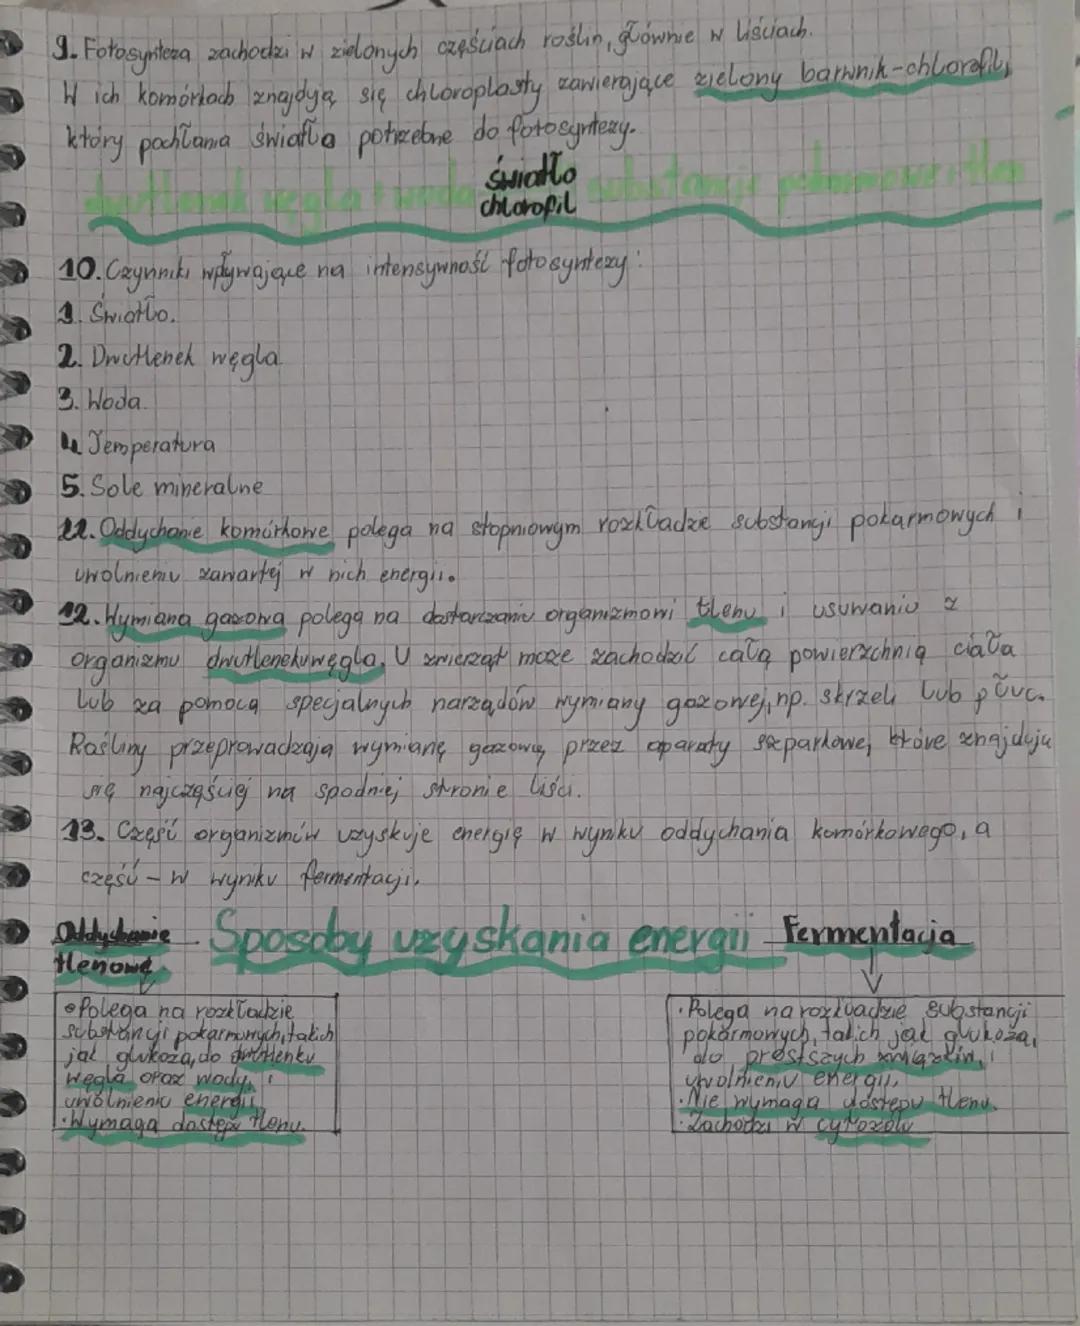 9. Fotosynteza zachodzi w zielonych częściach roślin, głównie w liściach.
W ich komórkach znajdują się chloroplasty zawierające zielony barwnik-chlorofil,
który pochłania światło potrzebne do fotosyntezy.
światło
dwutlenek węgla + woda substancje pokarmowe + tlen
chlorofil
10. Czynniki wpływające na intensywność fotosyntezy:
1. Światło.
2. Dwutlenek węgla
3. Woda.
4. Temperatura
5. Sole mineralne
11. Oddychanie komórkowe polega na stopniowym rozkładzie substancji pokarmowych i
uwolnieniu zawartej w nich energii.
12. Wymiana gazowa polega na dostarczaniu organizmowi tlenu i usuwaniu z
organizmu dwutlenku węgla. U zwierząt może zachodzić całą powierzchnią ciała
lub za pomocą specjalnych narządów wymiany gazowej, np. skrzeli lub płuc.
Rośliny przeprowadzają wymianę gazową przez aparaty szparkowe, które znajdują
się najczęściej na spodniej stronie liści.
13. Część organizmów uzyskuje energię w wyniku oddychania komórkowego, a
część - w wyniku fermentacji.
Oddychanie Sposoby uzyskania energii Fermentacja
tlenowe
• Polega na rozkładzie
substancji pokarmowych, takich
jak glukoza, do dwutlenku
węgla oraz wody, i
uwolnieniu energii
• Wymaga dostępu tlenu.
• Polega na rozkładzie substancji
pokarmowych, takich jak glukoza,
do prostszych związków, i
uwolnieniu energii,
• Nie wymaga dostępu tlenu.
• Zachodzi w cytozolu